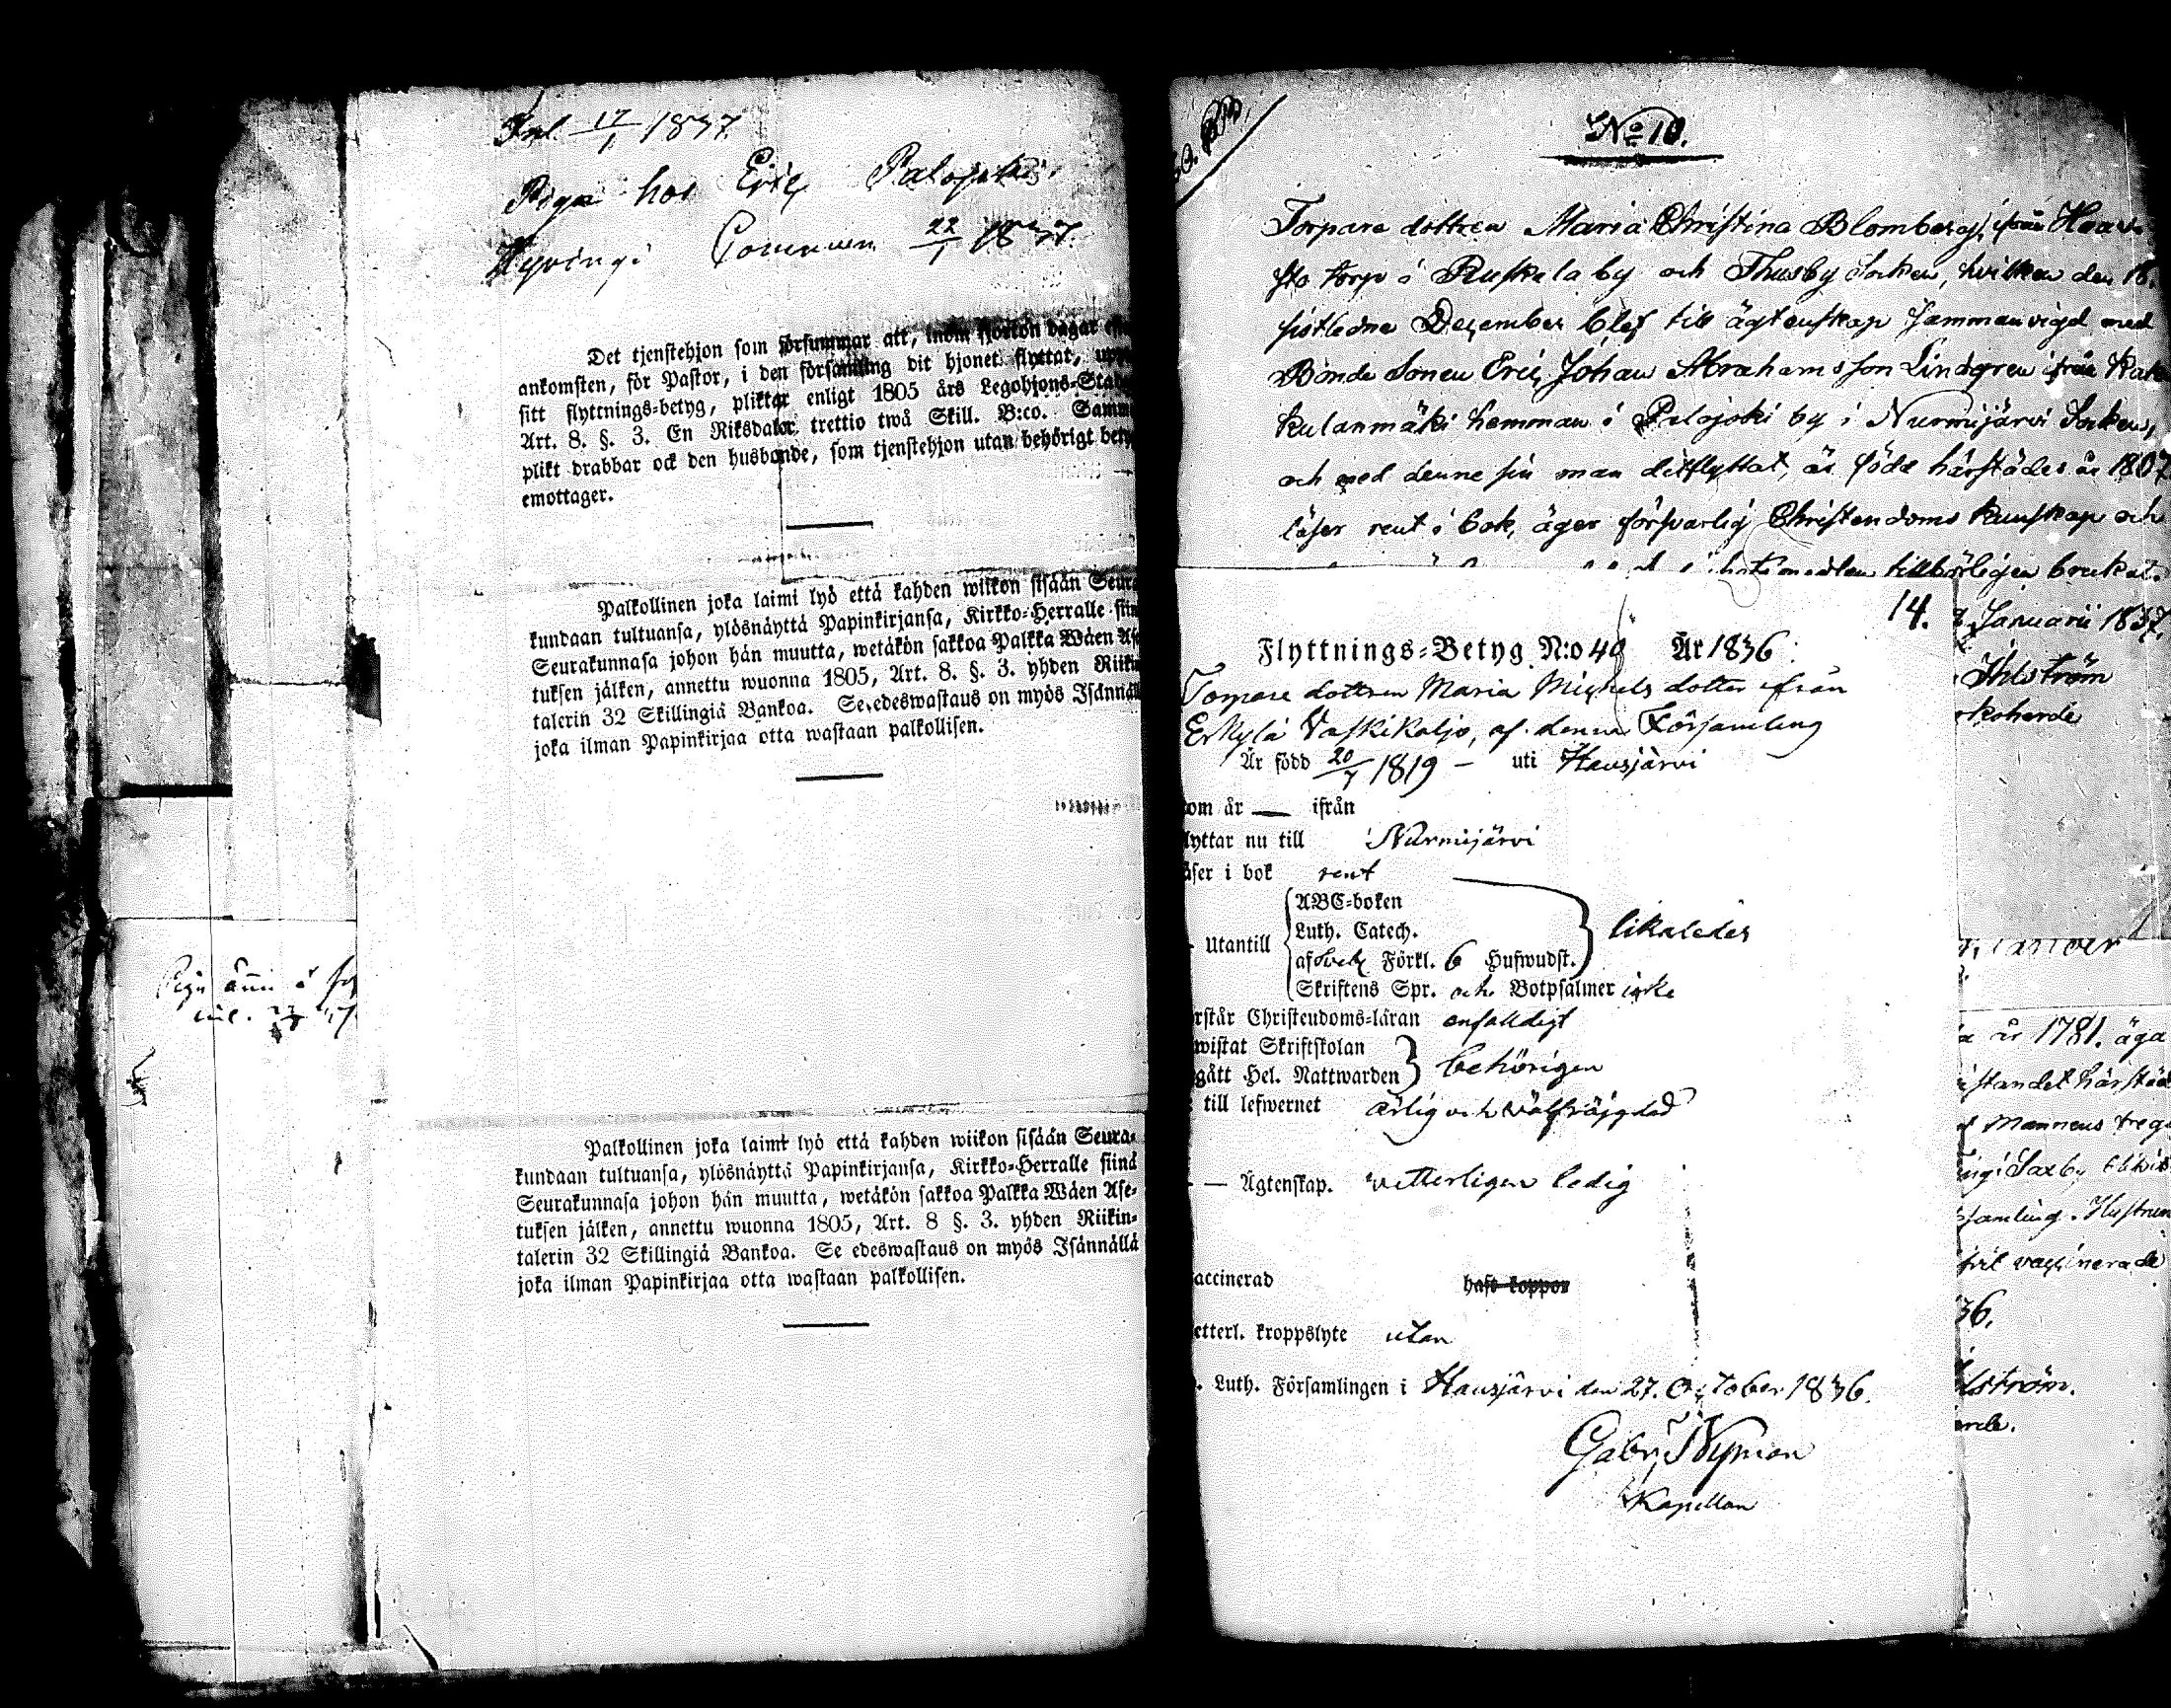 Inl. 17/1 1837.
Piga hos Eric Palojoki
Hyvinge 22/1 1837.
Det tjenstehjon som försummar att, inom fjorton dagar
ankomsten, för Pastor, i den församling dit hjonet flyttat,
sitt flyttnings-betyg, pliktar enligt 1805 års Legohjons-
Art. 8. §. 3. En Riksdaler trettio twå Skill. B:co.
plikt drabbar ock den husbonde, som tjenstehjon utan behörigt
emottager.
Palkollinen joka laimi lyö että kahden wiikon sisään
kundaan tultuansa, ylösnäyttä Papinkirjansa, Kirkko-Herralle
Seurakunnasa johon hän muutta, wetäkön sakkoa Palkka Wäen
tuksen jälken, annettu wuonna 1805, Art. 8. §. 3. yhden
talerin 32 Skillingiä Bankoa. Se edeswastaus on myös
joka ilman Papinkirjaa otta wastaan palkollisen.
Palkollinen joka laimi lyö että kahden wiikon sisään Seura-
kundaan tultuansa, ylösnäyttä Papinkirjansa, Kirkko-Herralle siinä
Seurakunnasa johon hän muutta, wetäkön sakkoa Palkka Wäen Ase-
tuksen jälken, annettu wuonna 1805, Art. 8 §. 3. yhden Riikin-
talerin 32 Skillingiä Bankoa. Se edeswastaus on myös Isännällä
joka ilman Papinkirjaa otta wastaan palkollisen.
No 10.
Torpare dottren Maria Christina Blomberg, ifrån
sto torp i Ruskela by och Thusby Socken, hvilken den 16.
sistledne December blef till ägtenskap sammanvigd med
Bonde Sonen Eric Johan Abrahamsson Lindgren ifrån
kulanmäki hemman i Palojoki by i Nurmijärvi Socken,
och med denne sin man ditflyttat, är född härstädes år 1807
läser rent i bok, äger försvarlig Christendoms kunskap och
tillbörligen brukat.
Januarii 1837.
Ihlström
14.
Flyttnings-Betyg N:o 40 År 1836
Torpare dottren Maria Michels dotter ifrån
Erkylä Vaskikaljo, af denna Församling
Är född 20/7 1819 – uti Hausjärvi
om år — ifrån
lyttar nu till Nurmijärvi
äser i bok rent
Utantill
ABC-boken
Luth. Catech.
af Sveb. Förkl. 6 Hufwudst.
likaledes
Skriftens Spr. och Botpsalmer icke
rstår Christendoms-läran enfalldigt
wistat Skriftskolan
gått Hel. Nattwarden
behörigen
till lefwernet ärlig och välfräjgdad
— Ägtenskap. vetterligen ledig
accinerad haft koppor
etterl. kroppslyte utan
. Luth. Församlingen i Hausjärvi den 27. October 1836.
Gabr. Nyman
Kapellan
år 1781. äga
standet härstäd
Mannens
Saxby
samling. Hustrun
vaccinerade
36.
lström.